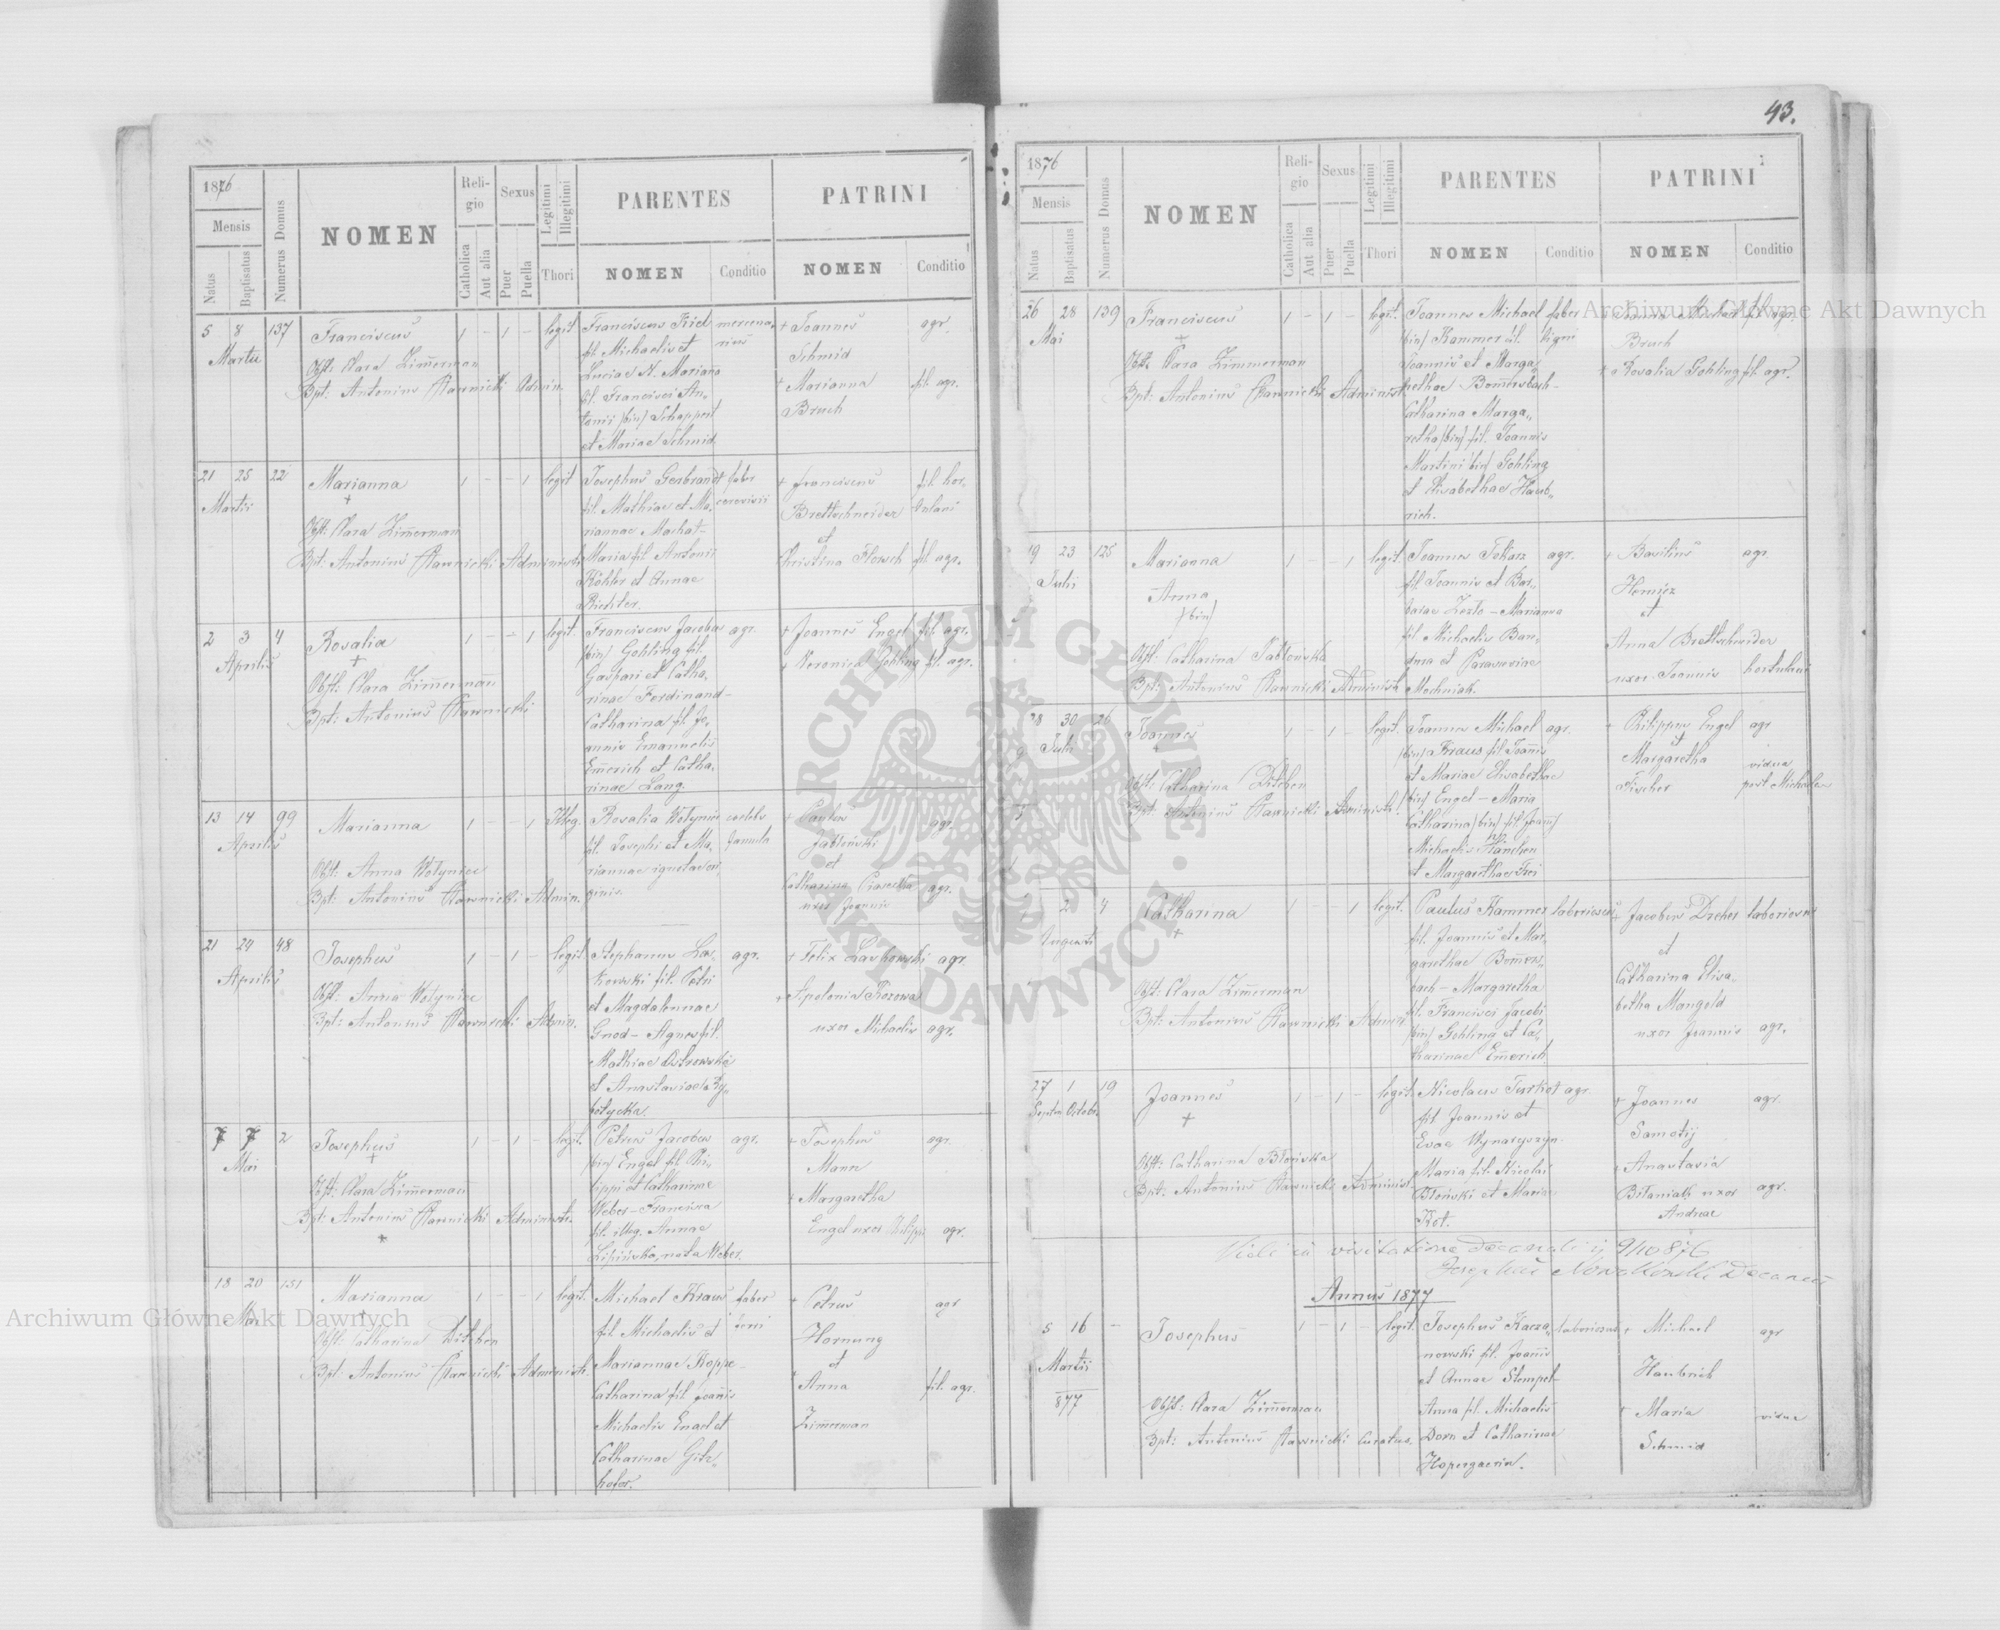 43.
1876
Mensis
Natus
Baptisatus
Numerus Domus
NOMEN
Reli-
gio
Catholica
Aut alia
Sexus
Puer
Puella
Legitimi
Illegitimi
Thori
PARENTES
NOMEN
Conditio
PATRINI
NOMEN
Conditio
5 8 137
Martii
Franciscus
Obst: Clara Zimerman
Bpt: Antonius Admin.
1 - 1 - legit
Franciscus Kiel
fil. Michaelis et
Luciae N. Mariana
fil. Francisci An-
tonii (bin) Schappert
et Mariae Schmid
mercena,
rius
+ Joannes
Schmid
+ Marianna
Bruch
agr.
fil. agr.
21 25 22
Martii
Marianna
+
Obst: Clara Zimerman
Bpt: Antonius Administ
1 - - 1 legit
Josephus Gerbrandt
fil. Mathiae et Ma,
riannae Machat-
Maria fil. Antonii
Köhler et Annae
Richter.
faber
cerevisii
+ Franciscus
Brettschneider
et
Christina Florsch
fil. hor-
tulani
fil. agr.
2 3 4
Aprilis
Rosalia
+
Obst: Clara Zimerman
Bpt: Antonius
1 - - 1 legit.
Franciscus Jacobus
(bin) Gehling fil.
Gaspari et Catha,
rinae Ferdinand-
Catharina fil. Jo-
annis Emanuelis
Emerich et Catha,
rinae Lang.
agr.
+ Joannes Engel fil. agr.
+ Veronica Gehling fil. agr.
13 14 99
Aprilis
Marianna
Obst: Anna Wołyniec
Bpt: Antonius Admin.
1 - - 1 Illeg.
Rosalia Wołyniec
fil. Josephi et Ma,
riannae ignotae ori,
ginis
coelebs
famula
+ Paulus
Jabłoński
et
Catharina Piasecka
uxor Joannis
agr.
agr.
21 24 48
Aprilis
Josephus
Obst: Anna Wołyniec
Bpt: Antonius Admin.
1 - 1 - legit.
Stephanus La-
kowski fil. Petri
et Magdalennae
Gnod- Agnes fil.
Mathiae Ostrowski
et Anastasiae Ry-
botycka.
agr.
+ Felix Laskowski agr.
+ Apolonia Kozowa
uxor Michaelis agr.
7 7 2
Mai
Josephus
+
Obst: Clara Zimermann
Bpt: Antonius Administ.
+
1 - 1 - legit.
Petrus Jacobus
(bin) Engel fil. Phi-
lippi et Catharinae
Weber- Francisca
fil. illeg. Annae
Lipińska, nata Weber.
agr.
+ Josephus
Mann
+ Margaretha
Engel uxor Philippi
agr.
agr.
18 20 151
Mai
Marianna
+
Obst: Catharina Ditchen
Bpt: Antonius Administ.
1 - - 1 legit.
Michael Kraus
fil. Michaelis et
Mariannae Koppe-
Catharina fil. Joannis
Michaelis Engel et
Catharinae Gitz-
hofer.
faber
+ Petrus
Hornung
et
Anna
Zimerman
agr
fil. agr.
1876
Mensis
Natus
Baptisatus
Numerus Domus
NOMEN
Reli-
gio
Catholica
Aut alia
Sexus
Puer
Puella
Legitimi
Illegitimi
Thori
PARENTES
NOMEN
Conditio
PATRINI
NOMEN
Conditio
26 28 139
Mai
Franciscus
+
Obst: Clara Zimmerman
Bpt: Antonius Administ.
1 - 1 - legit.
Joannes Michael
(bin) Kammer fil.
Joannis et Marga,
rethae Bomersbach-
Catharina Marga,
retha (bin) fil. Joannis
Martini (bin) Gehling
et Elisabethae Haub,
rich.
faber
ligni
Bruch
+ Rosalia Gehling fil. agr.
19 23 125
Julii
Marianna
Anna
(bin)
Obst: Catharina Jabłońska
Bpt: Antonius Administ.
1 - - 1 legit.
Joannes Tokarz
fil. Joannis et Bar-
barae Zozlo- Marianna
fil. Michaelis Ban-
dura et Parasceviae
Mochniak.
agr.
+ Basilius
Homicz
et
Anna Brettschneider
uxor Joannis
agr
hortulani
28 30 26
Julii
Joannes
+
Obst: Catharina Ditchen
Bpt: Antonius Administ.
1 - 1 - legit.
Joannes Michael
(bin) Kraus fil. Joannis
et Mariae Elisabethae
(bin) Engel- Maria
Catharina (bin) fil. Joannis
Michaelis Hänchen
et Margarethae Frei
agr.
+ Philippus Engel
et
Margaretha
Fischer
agr
vidua
post Michaelem
2 4
Augusti
Catharina
+
Obst: Clara Zimerman
Bpt: Antonius Admini
1 - - 1 legit.
Paulus Kammer
fil. Joannis et Mar,
garethae Bomers,
bach- Margaretha
fil. Francisci Jacobi
(bin) Gehling et Ca-
tharinae Emerich
laboriosus
+ Jacobus Dreher
et
Catharina Elisa-
betha Mangold
uxor Joannis
laboriosus
agr.
27 1 19
Septem Octobr.
Joannes
+
Obst: Catharina Błońska
Bpt: Antonius Administ.
1 - 1 - legit.
Nicolaus Turkot
fil. Joannis et
Evae Wynarszyn-
Maria fil. Nicolai
Błoński et Mariae
Kot.
agr
+ Joannes
Samotij
+ Anastasia
Bilaniak uxor
Andreae
agr.
agr.
Vidi in visitatione Decanali 9/10 876
Josephus Nowakowski Decanus
Annus 1877
5 16 -
Martii
877
Josephus
Obst: Clara Zimerman
Bpt: Antonius Curatus.
1 - 1 - legit.
Josephus Kacza,
nowski fil. Joannis
et Annae Stempel-
Anna fil. Michaelis
Dorn et Catharinae
laboriosus
+ Michael
Haubrich
+ Maria
Schmid
agr
vidua
Archiwum Główne Akt Dawnych
Archiwum Główne Akt Dawnych
ARCHIWUM GŁÓWNE
AKT DAWNYCH